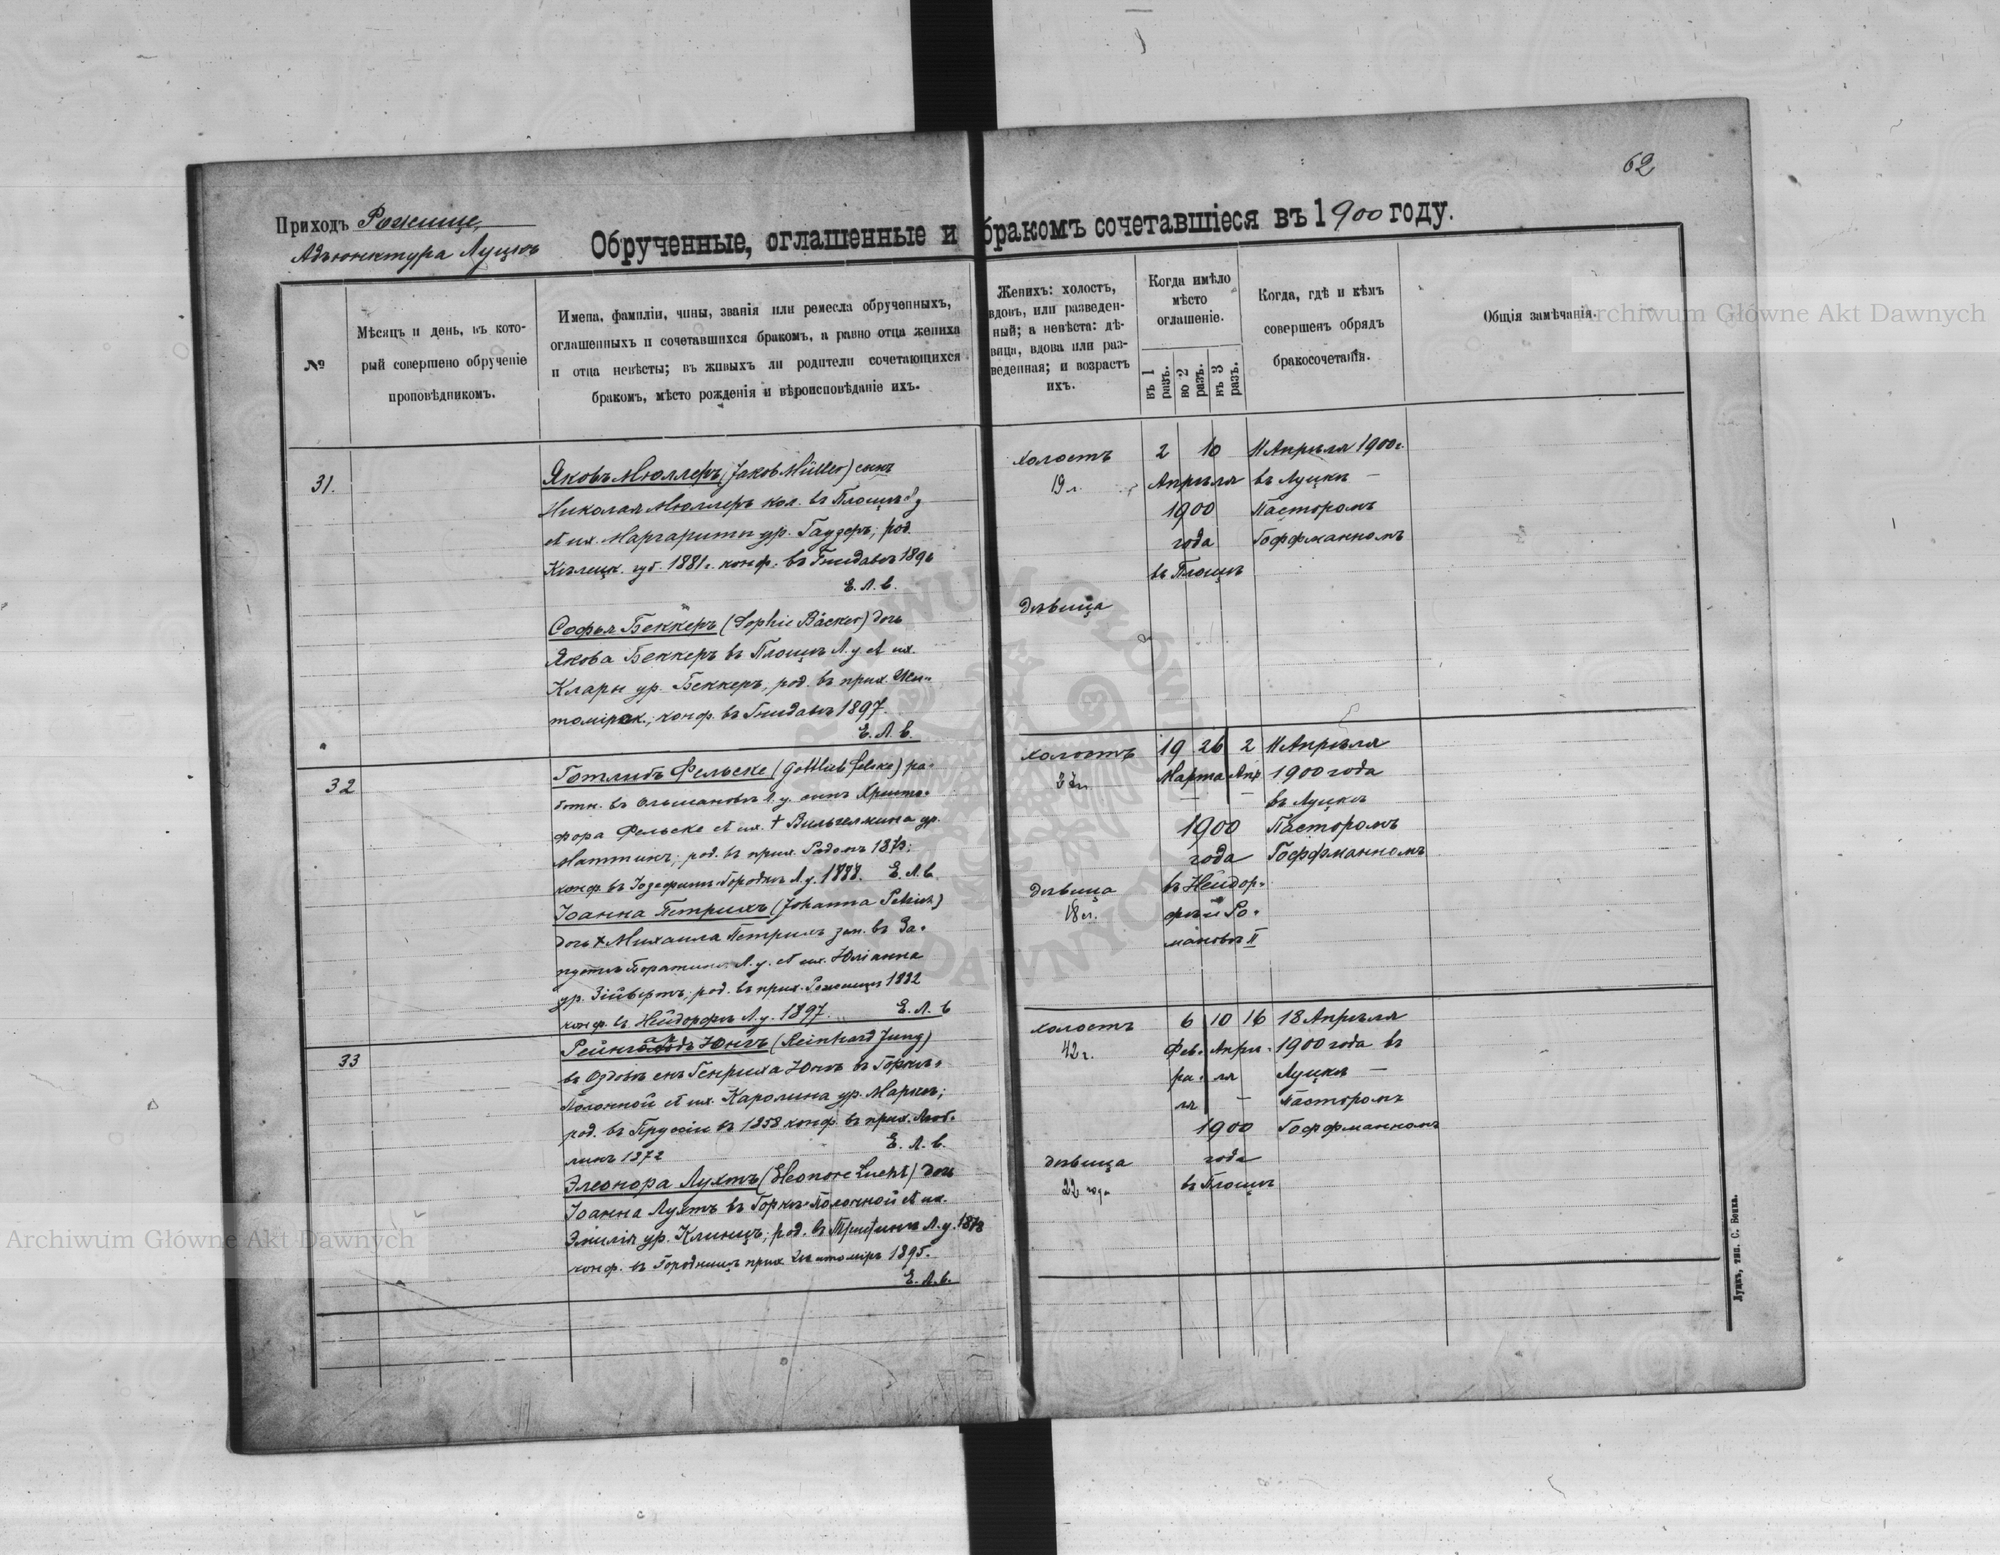 62
Приходъ Рожище,
Адъюнктура Луцкъ
Обрученные, оглашенные и бракомъ сочетавшіеся въ 1900 году.
№
Мѣсяцъ и день, въ кото-
рый совершено обрученіе
проповѣдникомъ.
Имена, фамиліи, чины, званія или ремесла обрученныхъ,
оглашенныхъ и сочетавшихся бракомъ, а равно отца жениха
и отца невѣсты; въ живыхъ ли родители сочетающихся
бракомъ, мѣсто рожденія и вѣроисповѣданіе ихъ.
Женихъ: холостъ,
вдовъ, или разведен-
ный; а невѣста: дѣ-
вица, вдова или раз-
веденная; и возрастъ
ихъ.
Когда имѣло
мѣсто
оглашеніе.
въ 1 разъ.
во 2 разъ.
въ 3 разъ.
Когда, гдѣ и кѣмъ
совершенъ обрядъ
бракосочетанія.
Общія замѣчанія.
31.
Яковъ Мюллеръ (Jakob Müller) сынъ
Николая Мюллеръ кол. въ Площѣ
и их. Маргариты ур. Гаудеръ, род.
Кѣлецк. губ. 1881г. конф. въ Гнидавѣ 1896
Е. Л. в.
Софья Беккеръ (Sophie Bäcker) дочь
Якова Беккеръ въ Площѣ Л. у. и их.
Клары ур. Беккеръ, род. въ прих. Жи-
томірск., конф. въ Гнидавѣ 1897.
Е. Л. в.
холостъ
19 л.
дѣвица
2 10
Апрѣля
1900
года
въ Площѣ
11 Апрѣля 1900г.
въ Луцкѣ —
Пасторомъ
Гоффманномъ
32
Готлибъ Фельске (Gottlieb Felske) ра-
ботн. въ Ольгановкѣ Л. у. сынъ Христо-
фора Фельске и их. † Вильгелмина ур.
род. въ прих. Радомъ 1873;
конф. въ Іозефинъ-Городкѣ Л. у. 1888. Е. Л. в.
Іоанна Петрихъ (Johanna Petrich)
дочь † Михаила Петрихъ зем. въ За-
пустѣ Боратинъ Л. у. и их. Юліанна
ур. Зійбертъ, род. въ прих. Рожище 1882
конф. въ Нейдорфѣ Л. у. 1897. Е. Л. в
холостъ
дѣвица
18 л.
19 26 2
Марта Апр
1900
года
въ Нейдор-
фѣ и Ро-
мановѣ II
11 Апрѣля
1900 года
въ Луцкѣ
Пасторомъ
Гоффманномъ
33
Рейнгардъ Юнгъ (Reinhard Jung)
въ Оздовѣ сынъ Генриха Юнгъ въ Горкѣ-
Полонной и их. Каролина ур. Маркъ;
род. въ Пруссіи въ 1858 конф. въ прих. Люб-
линъ 1872 Е. Л. в.
Элеонора Лухтъ (Eleonore Lucht) дочь
Іоанна Лухтъ въ Горкѣ-Полонной и их.
Эмилія ур. Клинцъ, род. въ Л. у. 1878
конф. въ Городницѣ прих. Житоміръ 1895.
Е. Л. в.
холостъ
42 г.
дѣвица
22 года
6 10 16
Фев- Апрѣ-
ра- ля
ля —
1900
года
въ Площѣ
18 Апрѣля
1900 года въ
Луцкѣ —
Пасторомъ
Гоффманномъ
Луцкъ, тип. С. Бокка.
Archiwum Główne Akt Dawnych
Archiwum Główne Akt Dawnych
ARCHIWUM GŁÓWNE AKT DAWNYCH